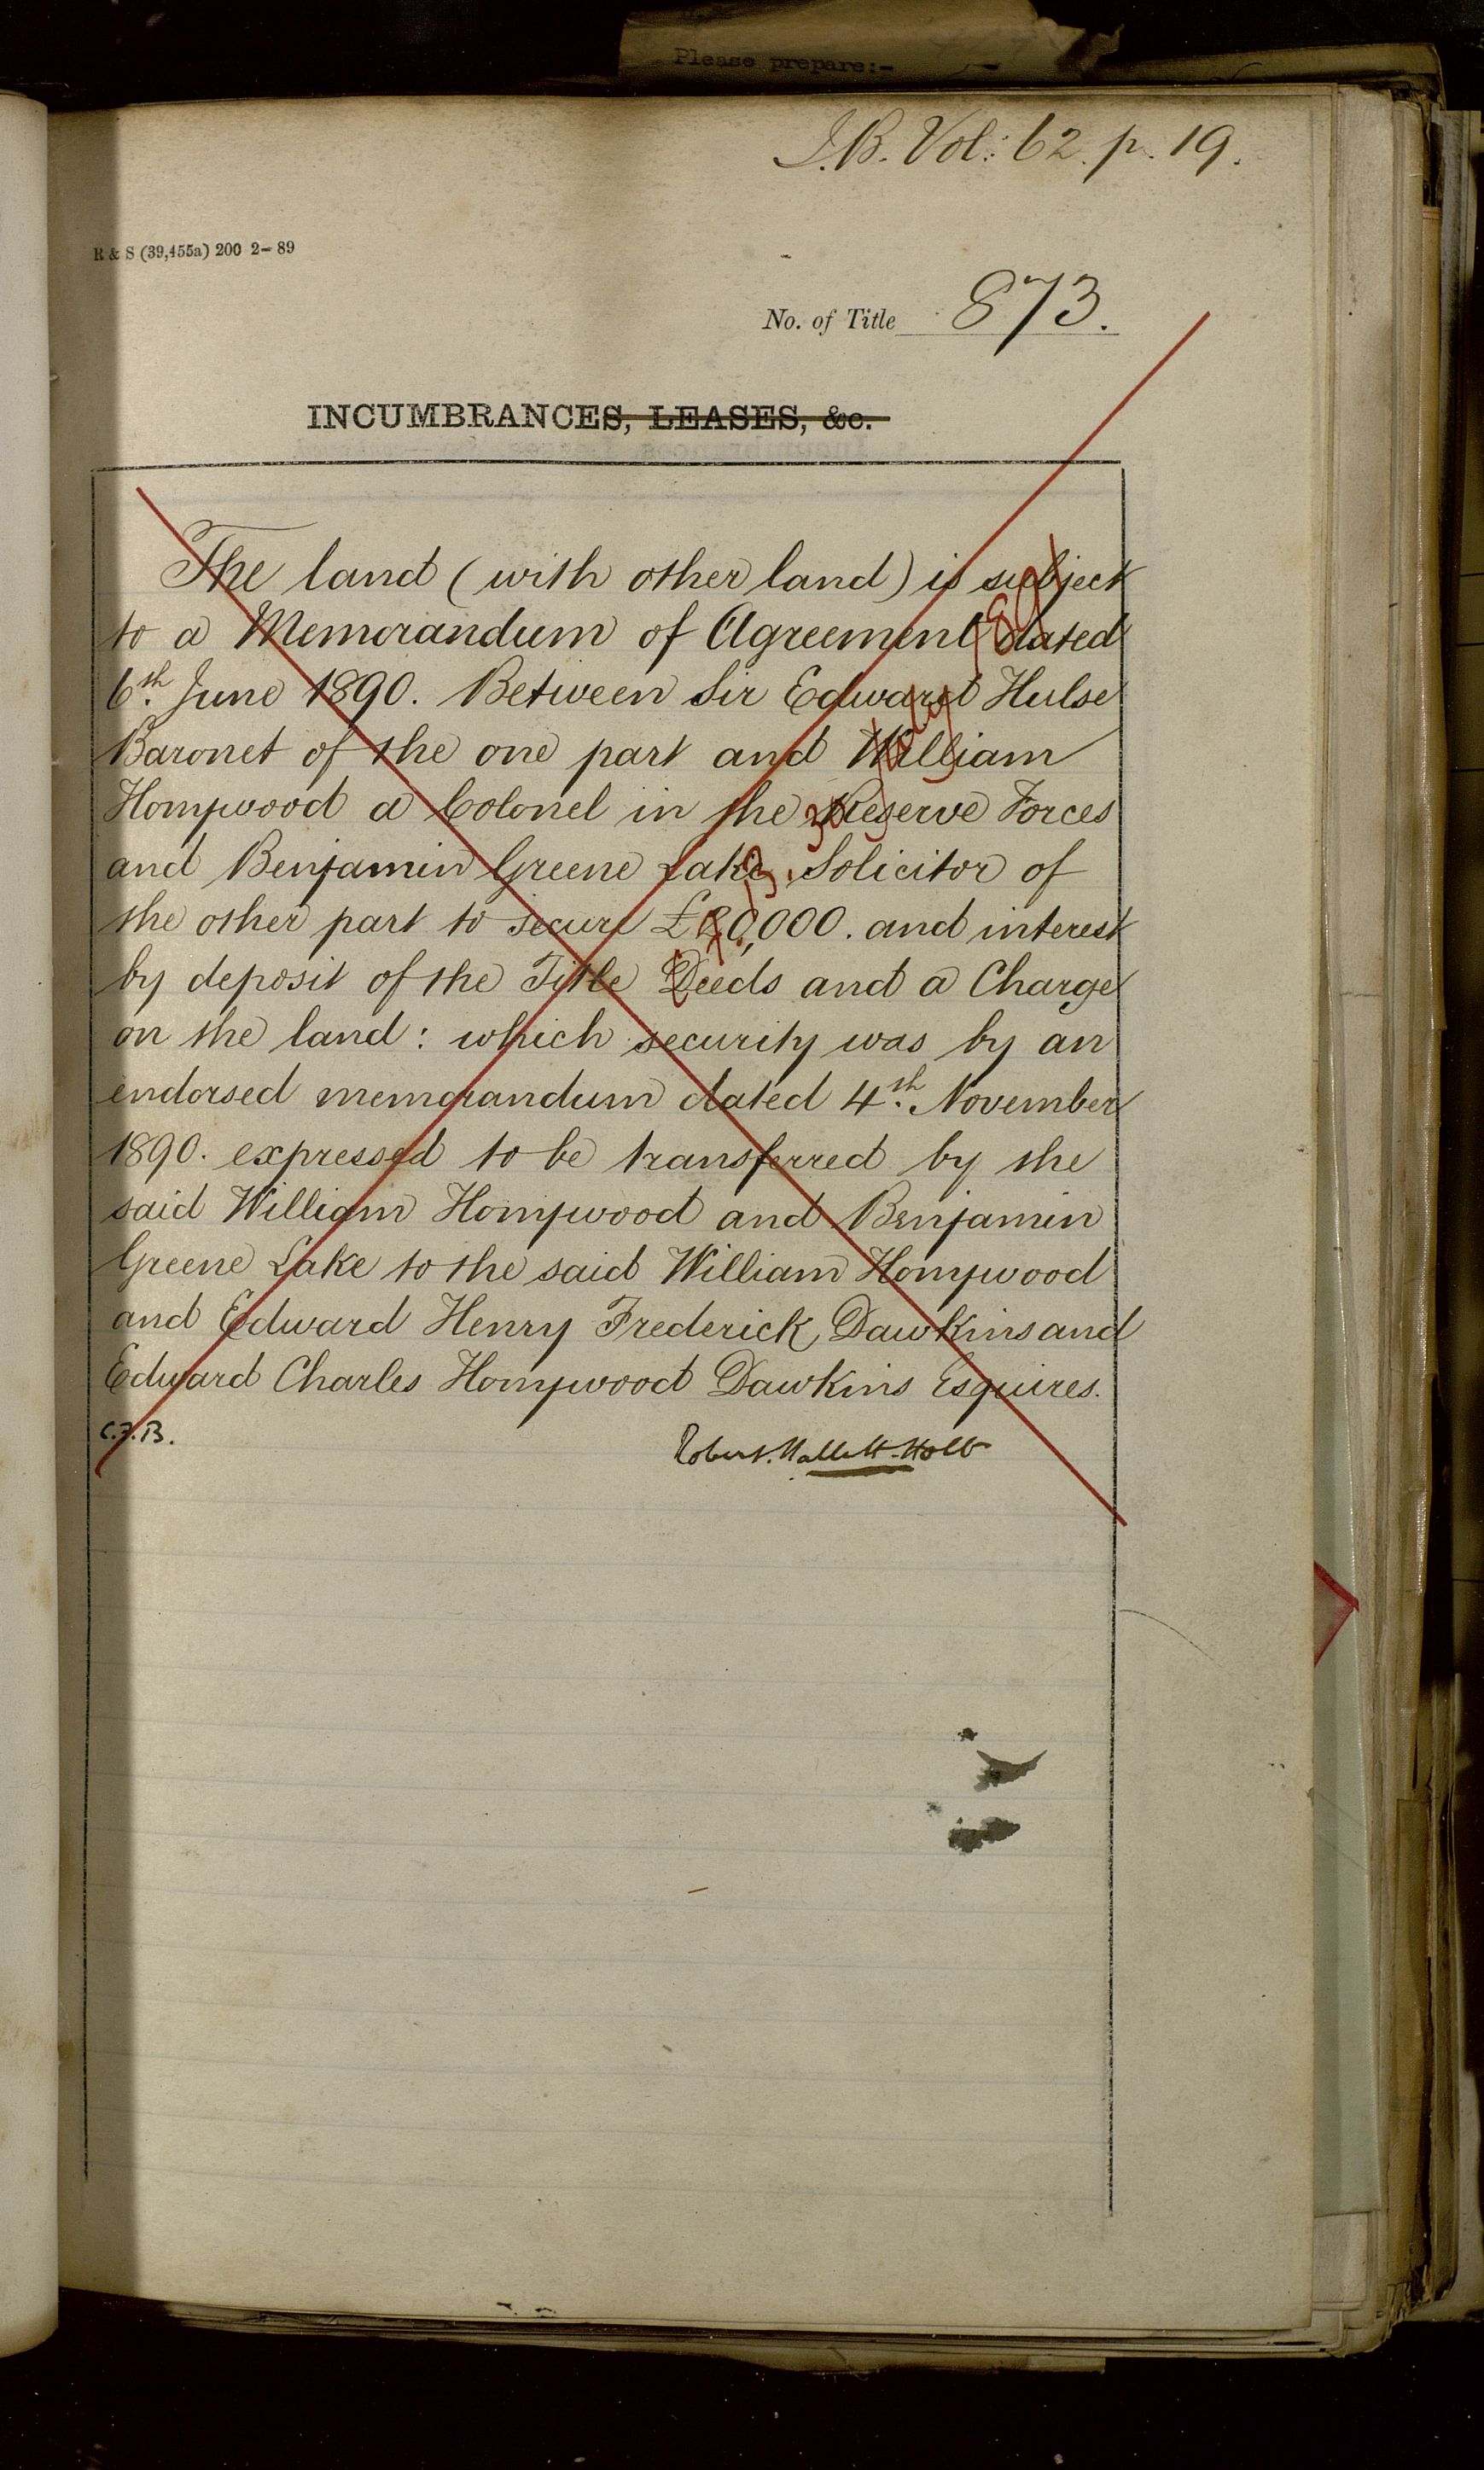 Please prepare:-
I.B. Vol: 62. p. 19.
R & S (39,455a) 200 2-89
No. of Title 873.
INCUMBRANCES, LEASES, &c.
The land (with other land) is subject
to a Memorandum of Agreement dated
6th June 1890. Between Sir Edward Hulse
Baronet of the one part and William
Honywood a Colonel in the Reserve Forces
and Benjamin Greene Lake, Solicitor of
the other part to secure and interest
by deposit of the Title Deeds and a Charge
on the land: which security was by an
endorsed memorandum dated 4th November
1890. expressed to be transferred by the
said William Honywood and Benjamin
Greene Lake to the said William Honywood
and Edward Henry Frederick Dawkins and
Edward Charles Honywood Dawkins Esquires.
C.F.B.
Robert Hallett Holt